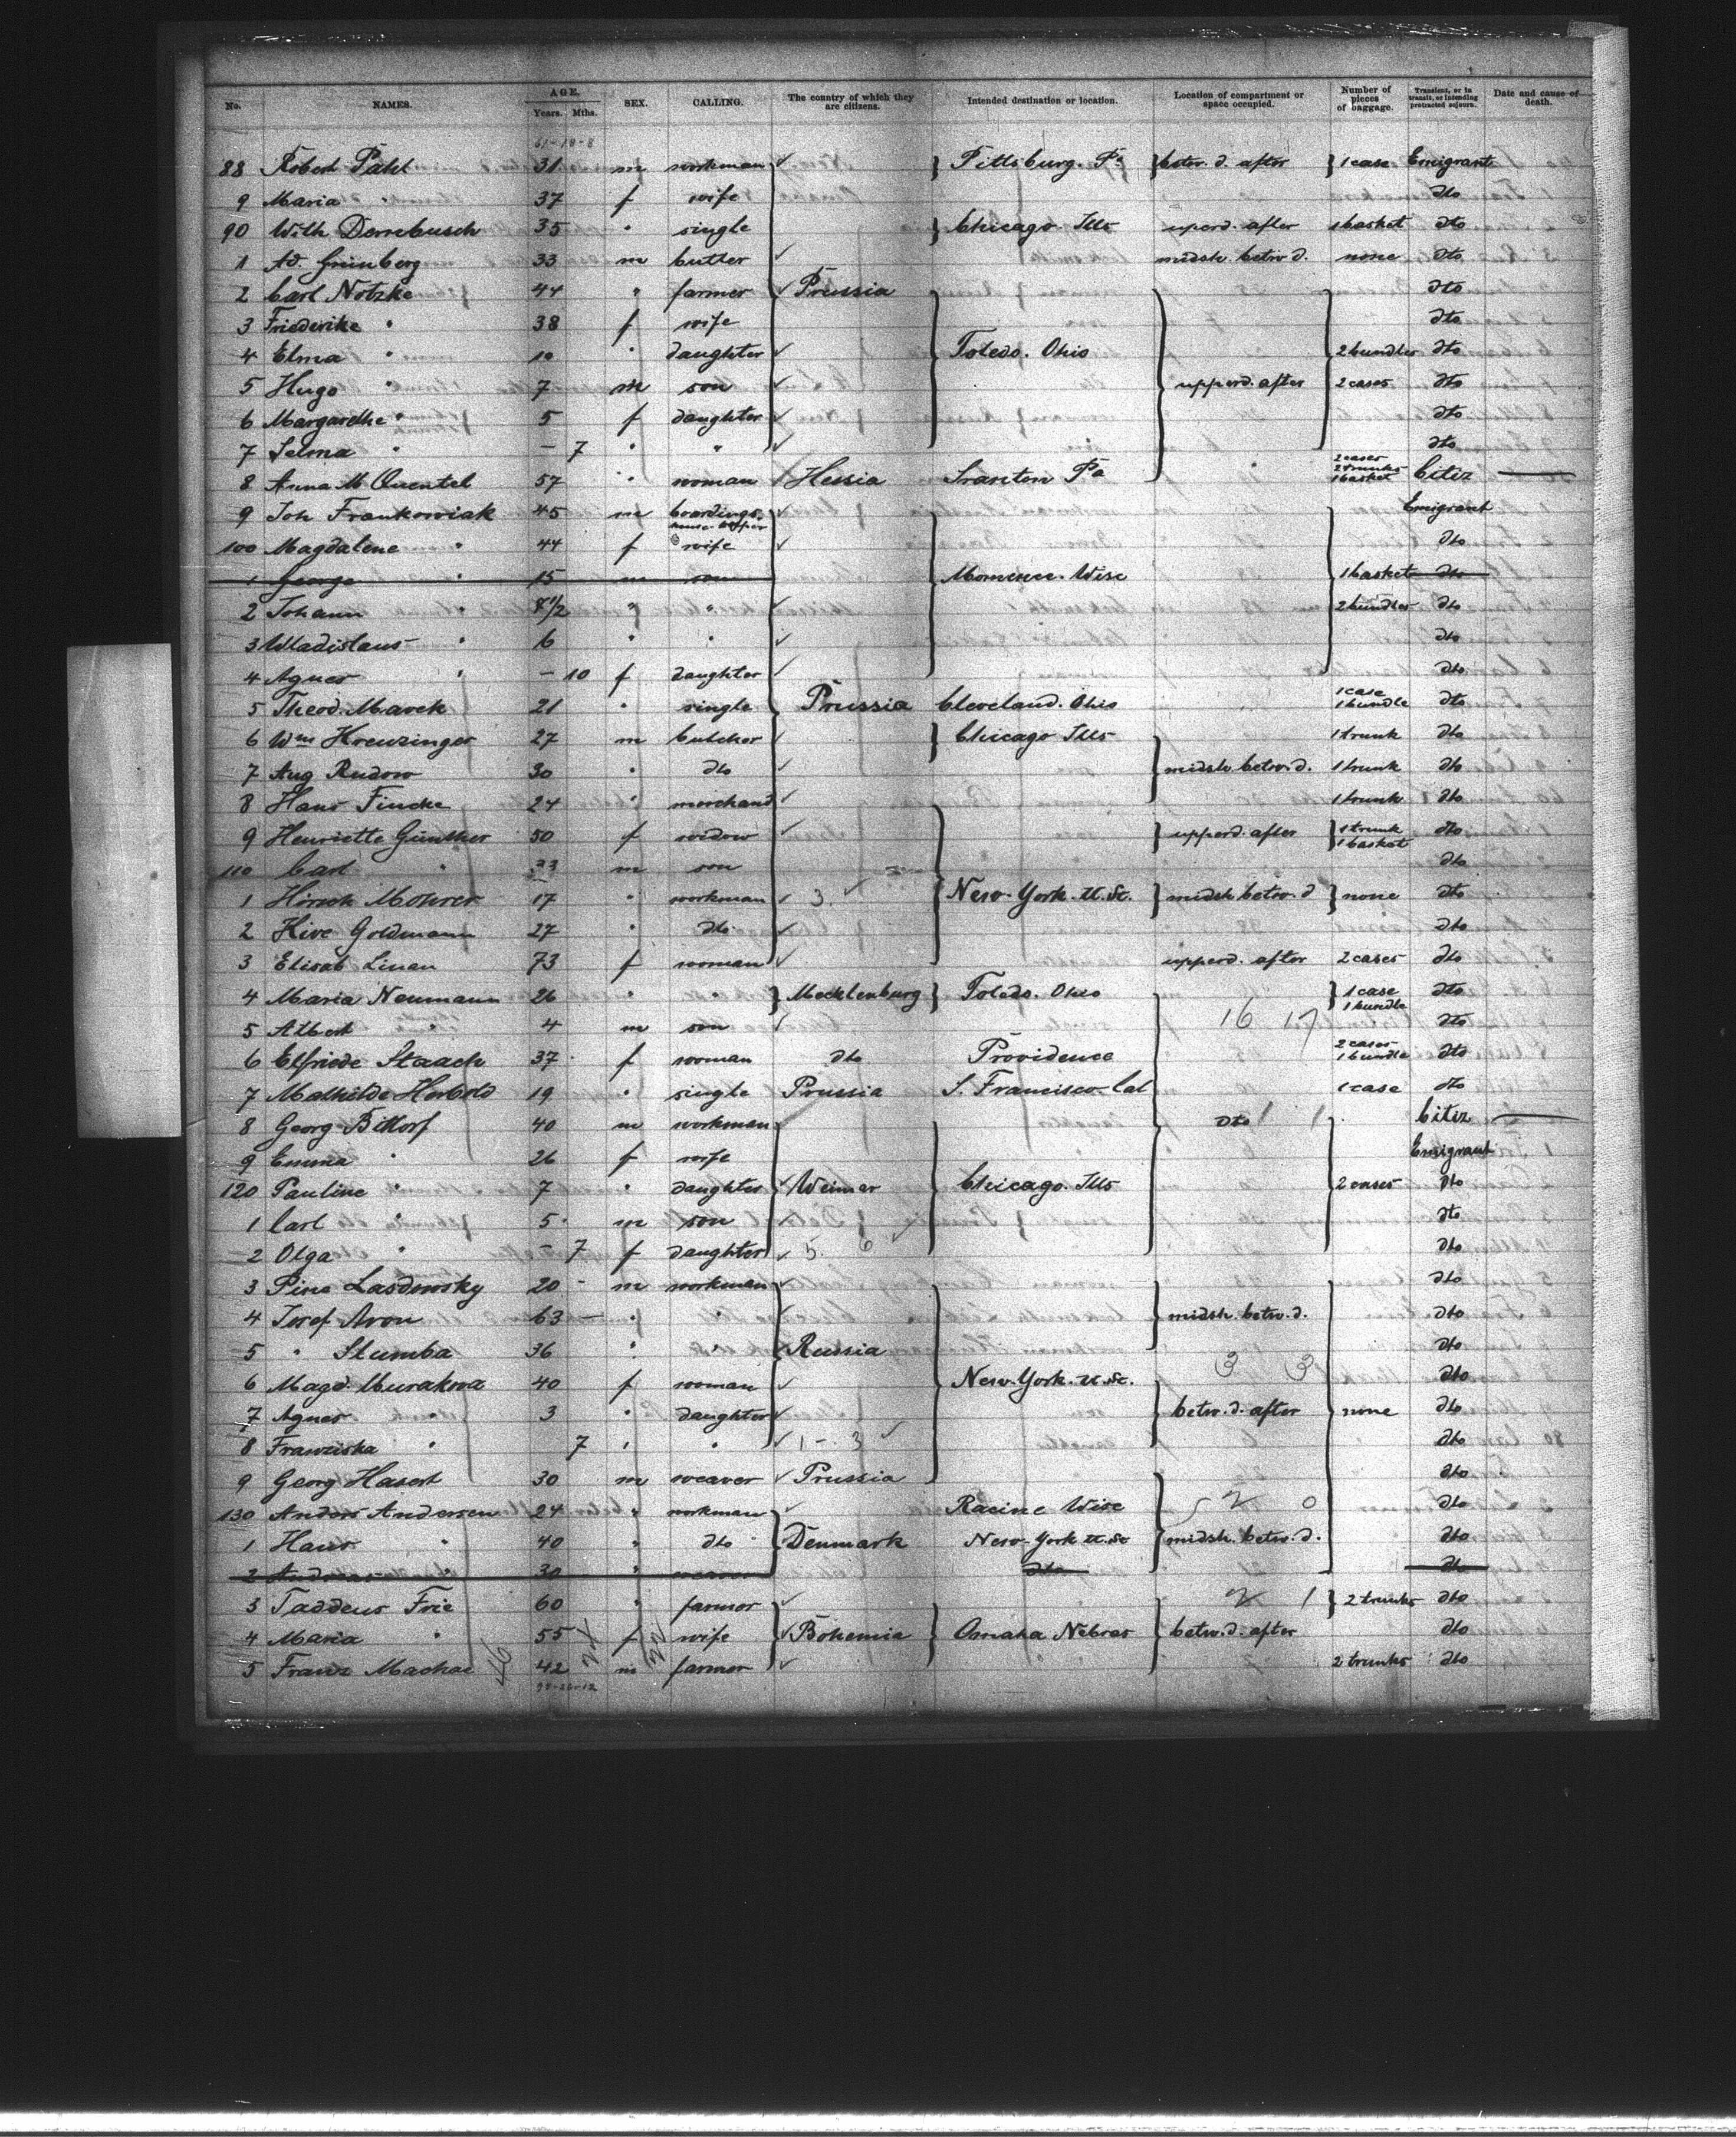 No. NAMES. AGE. Years. Mths. SEX. CALLING. The country of which they are citizens. Intended destination or location. Location of compartment or space occupied. Number of pieces of baggage. Transient, or in transit, or intending protracted sojourn. Date and cause of death.
61-18-8
88 Robert Pahl 31 m workman Pittsburg. Pa betw. d. after 1 case Emigrant
9 Maria " 37 f wife dto
90 Wilh Dornebusch 35 " single Chicago Ills upperd. after 1 basket dto
1 Ad. Grünberg 33 m butler midsh. betw d. none dto
2 Carl Notzke 44 " farmer Prussia dto
3 Friederike " 38 f wife dto
4 Elma " 10 " daughter Toledo. Ohio 2 bundles dto
5 Hugo " 7 m son upperd. after 2 cases dto
6 Margarethe " 5 f daughter dto
7 Selma " – 7 " " dto
8 Anna M Quentel 57 " woman Hessia Sranton Pa " 2 cases 2 trunks 1 basket Citiz
9 Joh Frankowiak 45 m boardings. house keeper Emigrant
100 Magdalene " 44 f wife dto
1 George " 15 m son Momence. Wise 1 basket dto
2 Johann " 8 1/2 " " 2 bundles dto
3 Wladislaus " 6 " " dto
4 Agnes " – 10 f daughter dto
5 Theod. Marek 21 " single Prussia Cleveland. Ohio 1 case 1 bundle dto
6 Wm Kreuzinger 27 m butcher Chicago Ills 1 trunk dto
7 Aug Rudow 30 " dto midsh. betw. d. 1 trunk dto
8 Hans Fincke 24 " merchand 1 trunk dto
9 Henriette Günther 50 f widow upperd. after 1 trunk 1 basket dto
110 Carl " 33 m son dto
1 Hirsch Mohrer 17 " workman 3. New-York. U.St. midsh. betw. d none dto
2 Hive Goldmann 27 " dto dto
3 Elisab Linan 73 f woman upperd. after 2 cases dto
4 Maria Neumann 26 " " Mecklenburg Toledo. Ohio 1 case 1 bundle dto
5 Albert " 4 m son 16 17 dto
6 Elfriede Staack 37 f woman dto Providence 2 cases 1 bundle dto
7 Mathilde Herbold 19 " single Prussia S. Francisco Cal 1 case dto
8 Georg Bittorf 40 m workman dto 1 1 Citiz
9 Emma " 26 f wife Emigrant
120 Pauline " 7 " daughter Weimar Chicago. Ills 2 cases dto
1 Carl " 5 m son dto
2 Olga " – 7 f daughter 5. 6 dto
3 Pine Lasdowsky 20 m workman dto
4 Josef Aron 63 " " midsh. betw. d. dto
5 " Stumba 36 " " Russia dto
6 Magd. Murakowa 40 f woman New-York. U.St. 3 3 dto
7 Agnes " 3 " daughter betw. d. after none dto
8 Franziska " 7 " " 1 – 3 dto
9 Georg Hasert 30 m weaver Prussia dto
130 Anders Andersen 24 " workman Racine Wise 2 0 dto
1 Hans " 40 " dto Denmark New-York U.St midsh. betw. d. dto
2 Andreas " 30 " weaver dto dto
3 Taddeus Frie 60 " farmer 2 1 2 trunks dto
4 Maria " 55 f wife Bohemia Omaha Nebras betw. d. after dto
5 Franz Machac 42 m farmer " " " 2 trunks dto
46